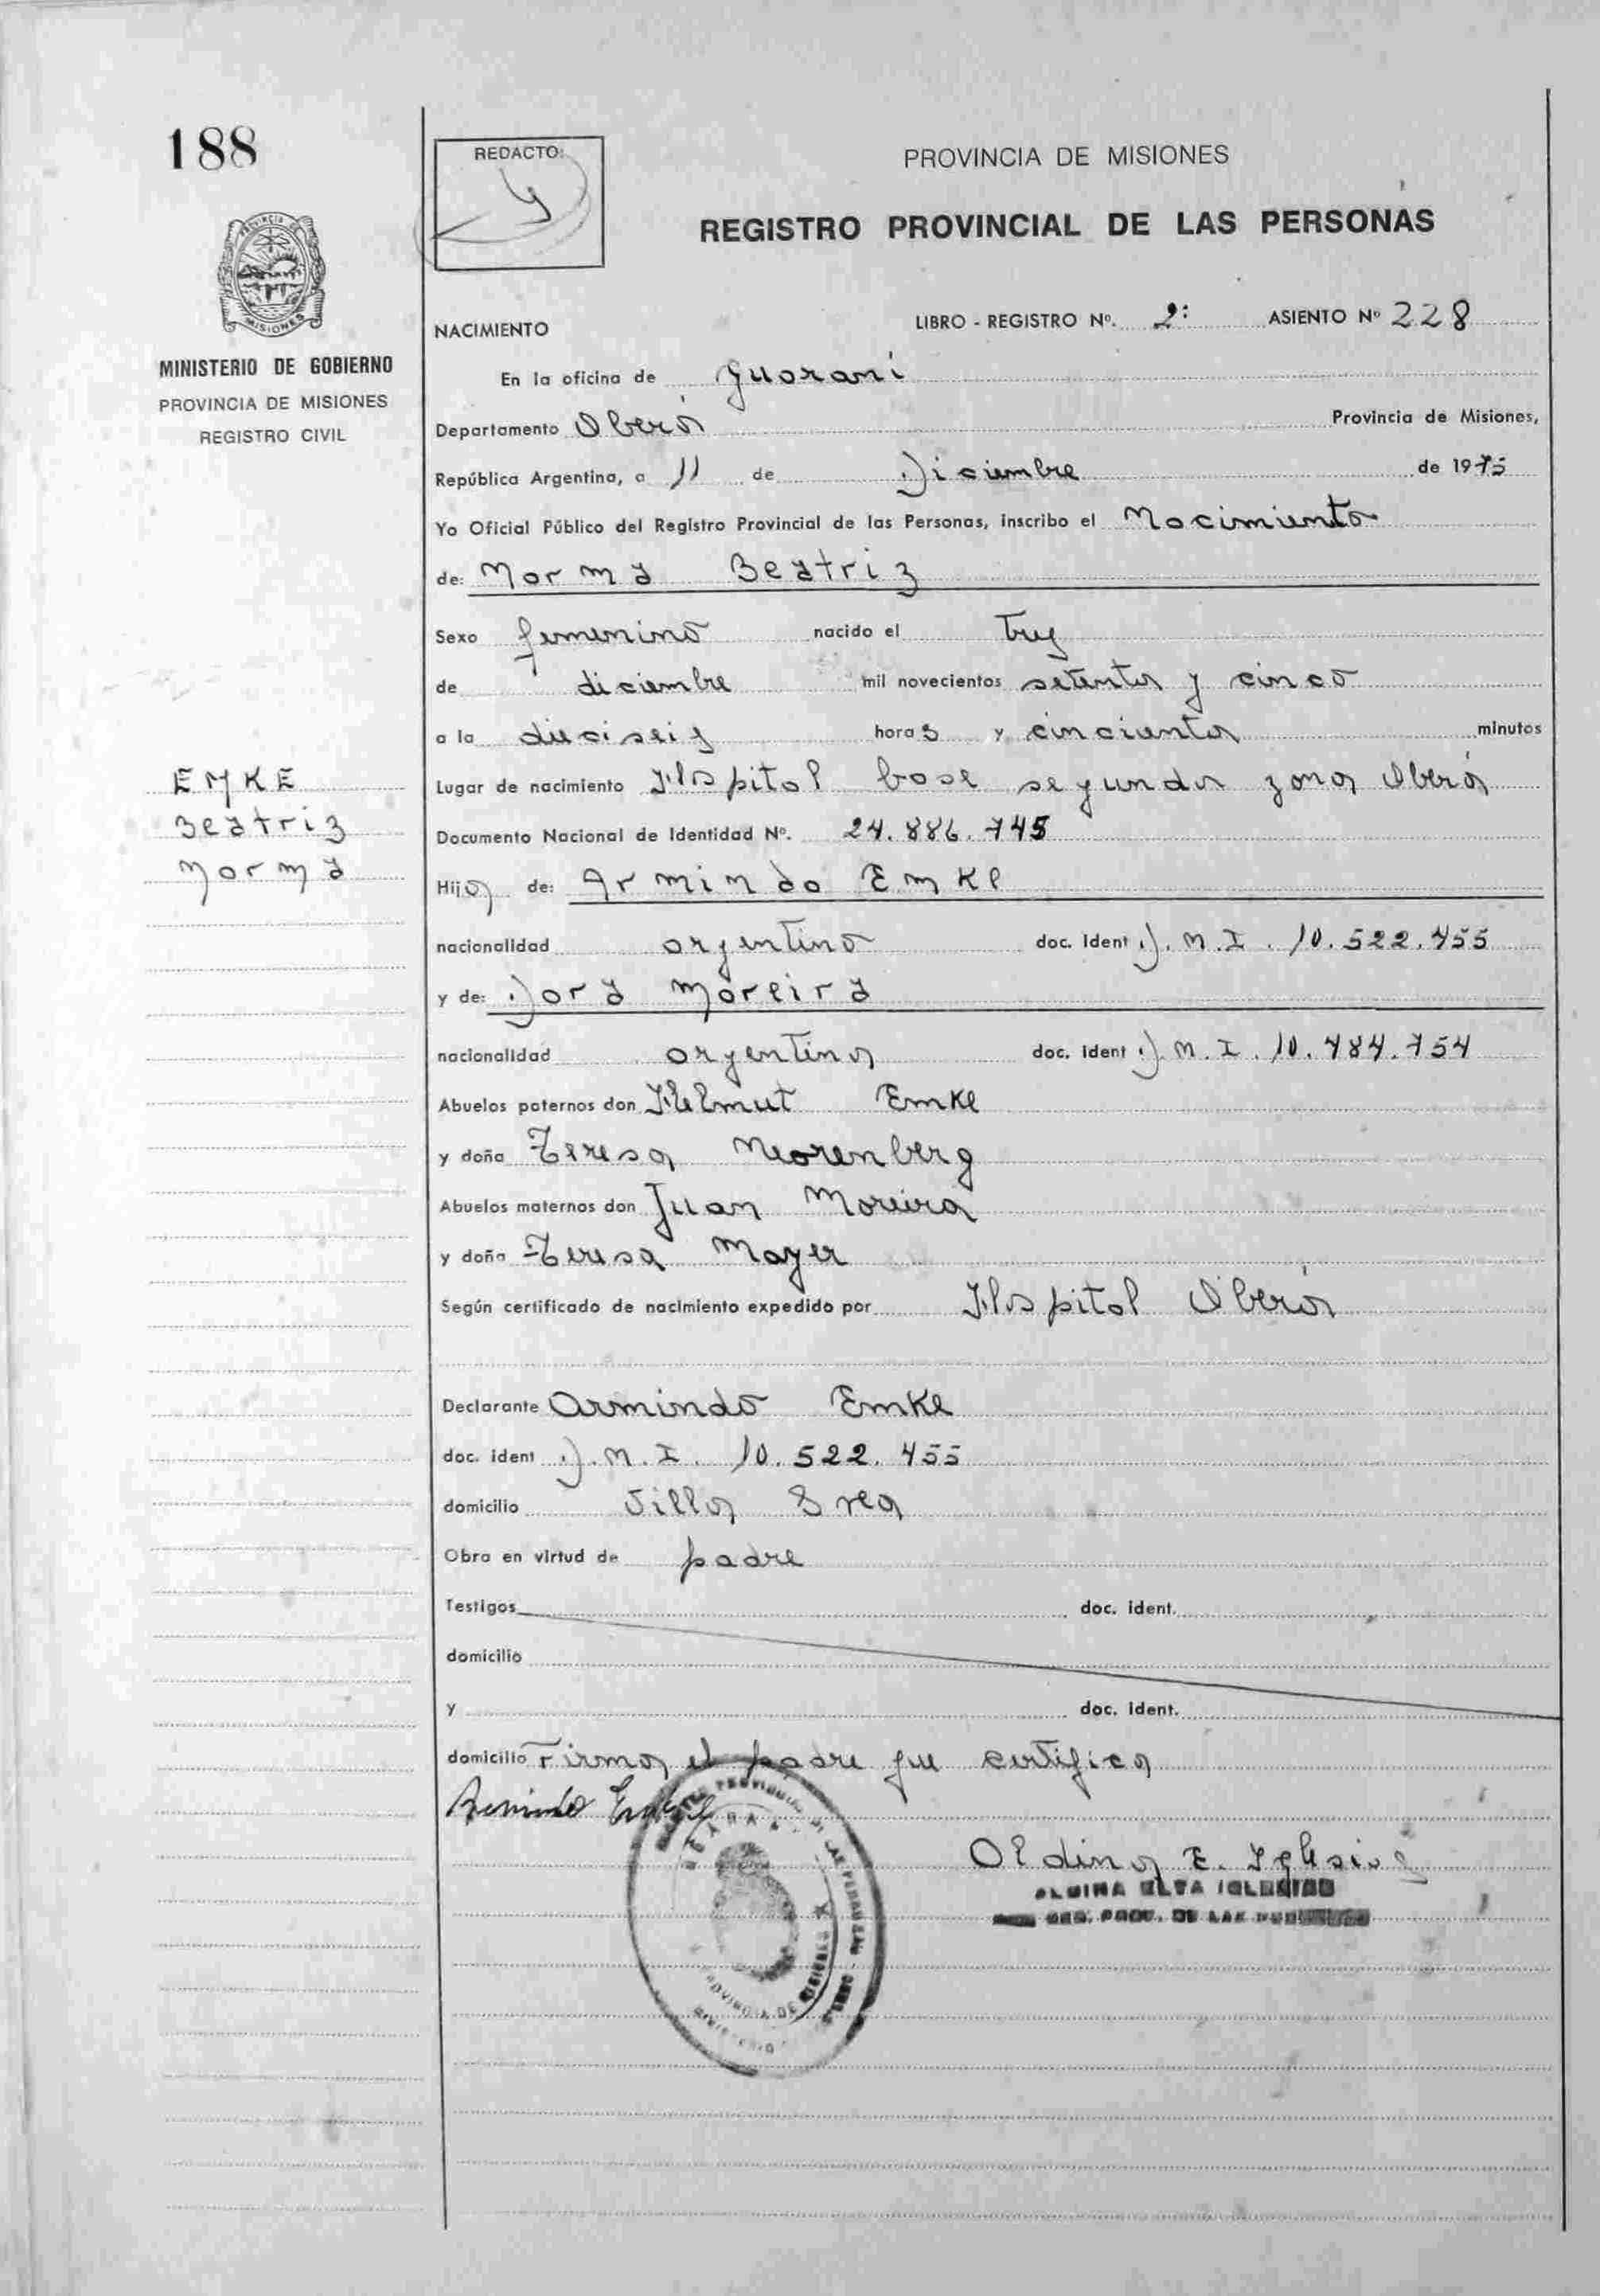 188
REDACTO:
PROVINCIA DE MISIONES
REGISTRO PROVINCIAL DE LAS PERSONAS
PROVINCIA
MISIONES
MINISTERIO DE GOBIERNO
PROVINCIA DE MISIONES
REGISTRO CIVIL
NACIMIENTO LIBRO - REGISTRO Nº. 2: ASIENTO Nº 228
En la oficina de Guaraní
Departamento Oberá Provincia de Misiones,
República Argentina, a 11 de Diciembre de 1975
Yo Oficial Público del Registro Provincial de las Personas, inscribo el Nacimiento
de: Norma Beatriz
Sexo femenino nacido el tres
de diciembre mil novecientos setenta y cinco
a la dieciseis horas y cincuenta minutos
EMKE
Beatriz
Norma
Lugar de nacimiento Hospital base segunda zona Oberá
Documento Nacional de Identidad Nº. 24.886.745
Hija de: Armindo Emke
nacionalidad argentino doc. ident D.N.I. 10.522.455
y de: Dora Moreira
nacionalidad argentina doc. ident D.N.I. 10.484.754
Abuelos paternos don Helmut Emke
y doña Teresa
Abuelos maternos don Juan Moreira
y doña Teresa Mayer
Según certificado de nacimiento expedido por Hospital Oberá
Declarante Armindo Emke
doc. ident D.N.I. 10.522.455
domicilio Villa
Obra en virtud de padre
Testigos doc. ident.
domicilio
y doc. ident.
domicilio Firma el padre que certifica
Armindo Emke
Aldina E. Iglesias
ALDINA ELSA IGLESIAS
REG. PROV. DE LAS